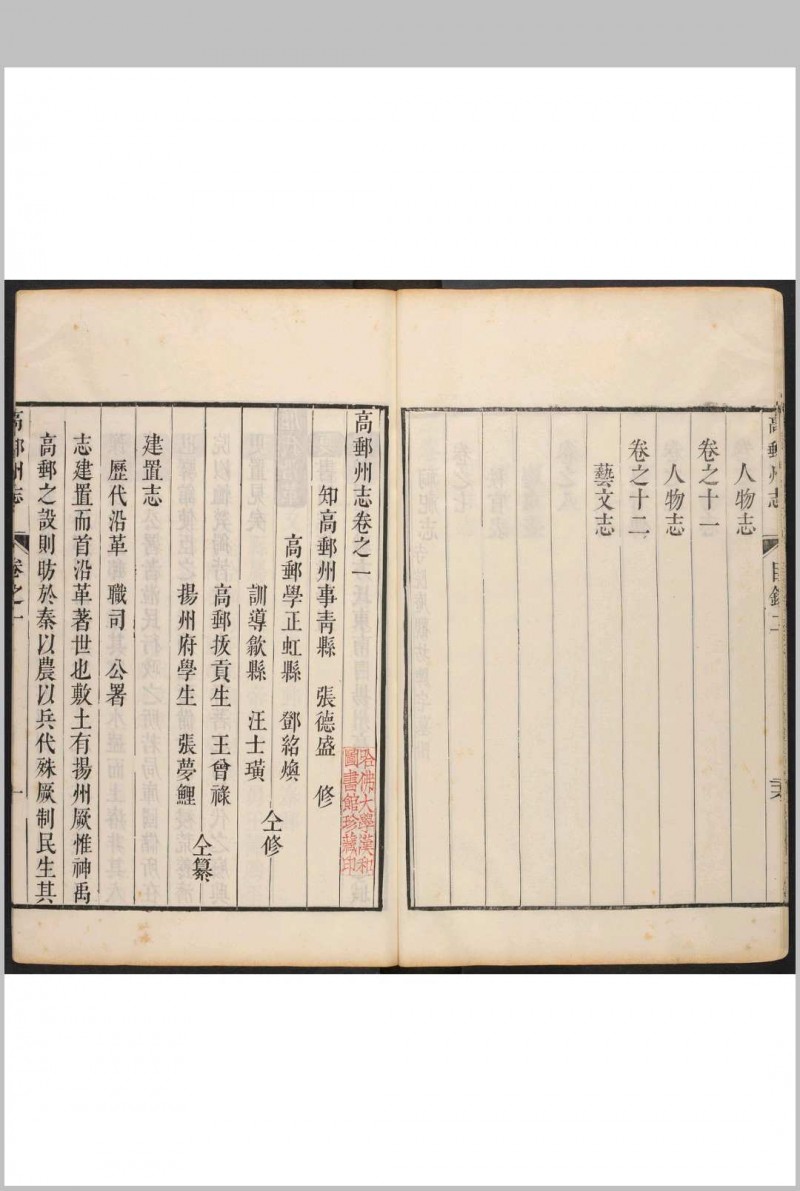 高郵州志
目錄二
人物志
卷之十一
人物志
卷之十二
藝文志
高郵州志卷之一
知高郵州事青縣　張德盛　修
高郵學正虹縣　鄧紹煥
訓導歙縣　汪士璜
仝修
高郵拔貢生　王曾祿
揚州府學生　張夢鯉
仝纂
建置志
歷代沿革　職司　公署
志建置而首沿革著世也敷土有揚州厥惟神禹
高郵之設則昉於秦以農以兵代殊厥制民生其
高郵州志
卷之一
一
哈佛大學漢和
圖書館珍藏印